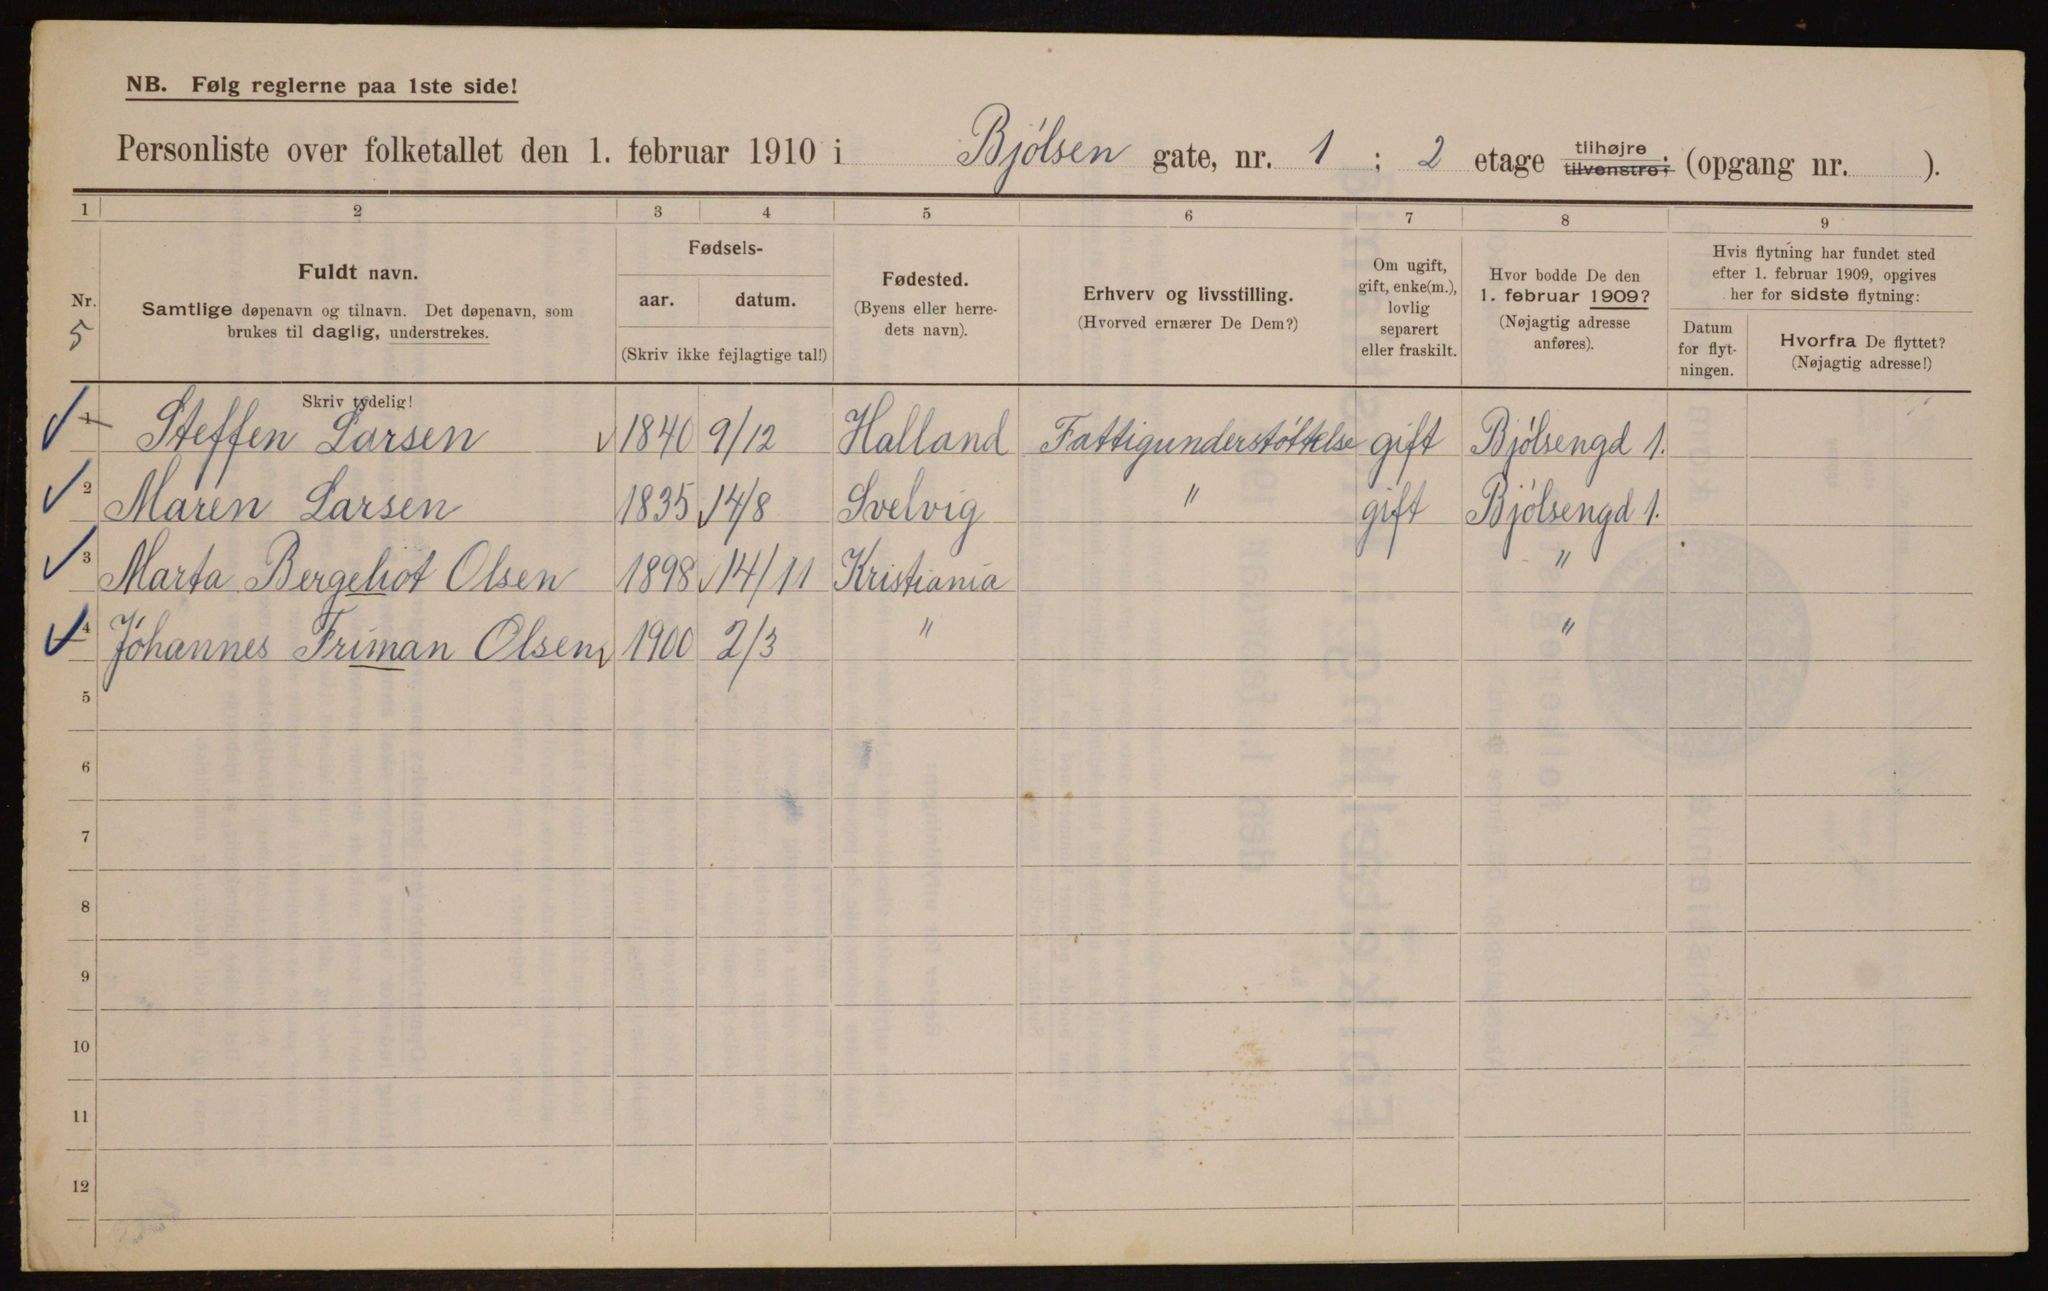 NB. Følg reglerne paa 1ste side!
Personliste over folketallet den 1. februar 1910 i Bjölsen gate, nr. 1 ; 2 etage tilhøjre tilvenstre; (opgang nr. ).
1 2 3 4 5 6 7 8 9
Nr.
5
Fuldt navn.
Samtlige døpenavn og tilnavn. Det døpenavn, som
brukes til daglig, understrekes.
Fødsels-
aar. datum.
(Skriv ikke fejlagtige tal!)
Fødested.
(Byens eller herre-
dets navn).
Erhverv og livsstilling.
(Hvorved ernærer De Dem?)
Om ugift,
gift, enke(m.),
lovlig
separert
eller fraskilt.
Hvor bodde De den
1. februar 1909?
(Nøjagtig adresse
anføres).
Hvis flytning har fundet sted
efter 1. februar 1909, opgives
her for sidste flytning:
Datum
for flyt-
ningen.
Hvorfra De flyttet?
(Nøjagtig adresse!)
Skriv tydelig!
1 Steffen Larsen 1840 9/12 Halland Fattigunderstöttelse gift Bjölsengd 1.
2 Maren Larsen 1835 14/8 Svelvig " gift Bjölsengd 1.
3 Marta Bergeliot Olsen 1898 14/11 Kristiania "
4 Johannes Friman Olsen 1900 2/3 " "
5
6
7
8
9
10
11
12